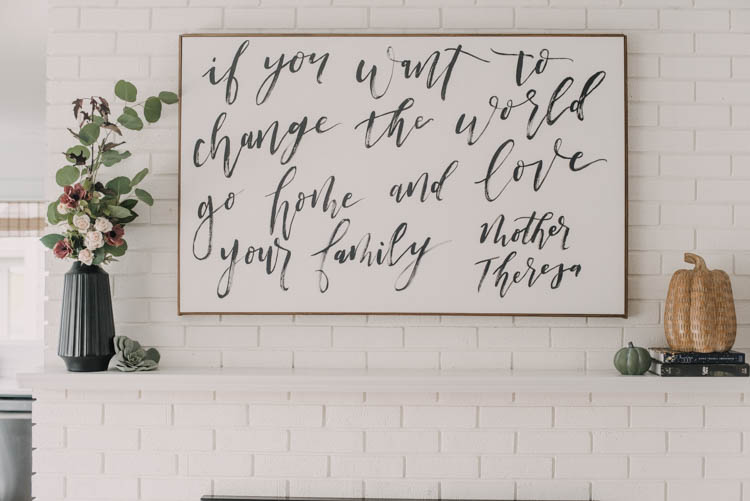 if you want to
change the world
go home and love
your family
Mother
Theresa